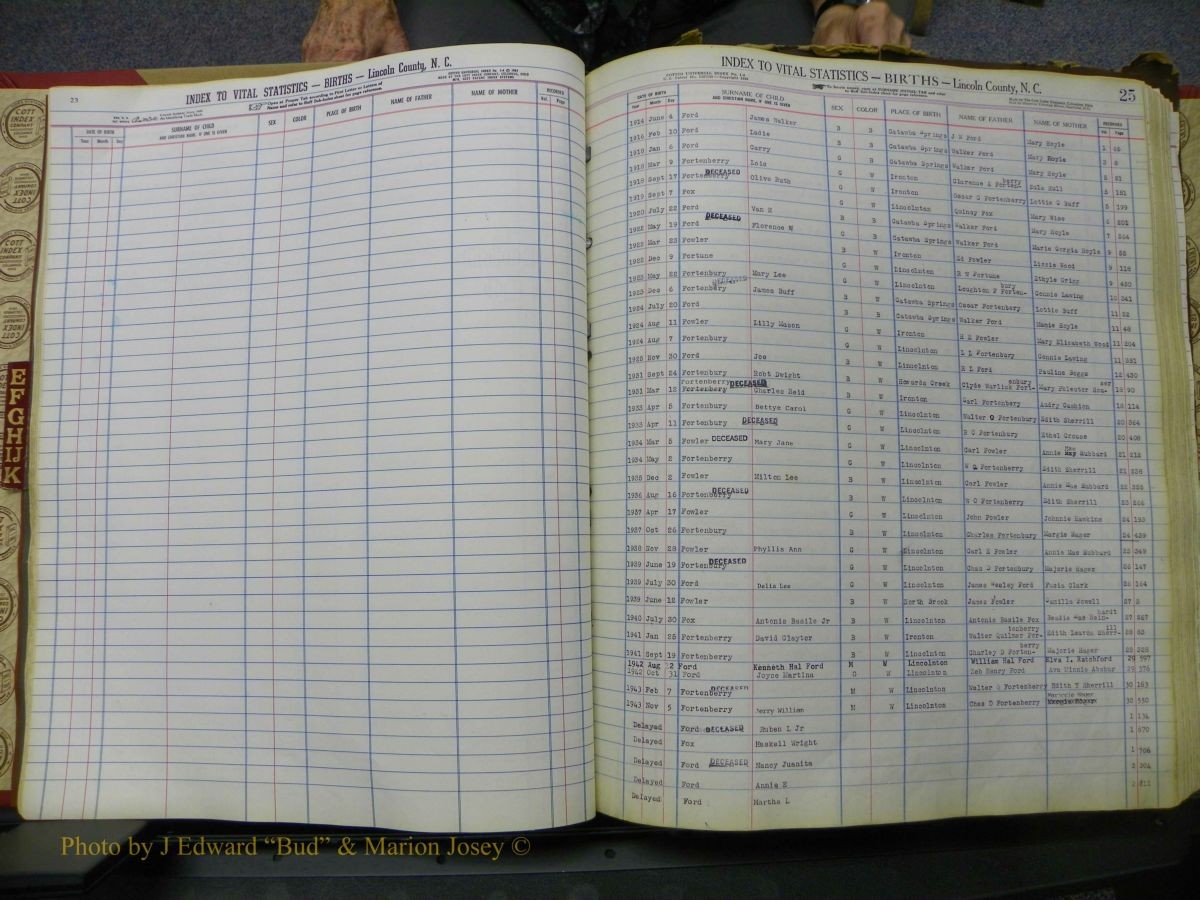 23
INDEX TO VITAL STATISTICS — BIRTHS — Lincoln County, N. C.
DATE OF BIRTH
Year Month Day
SURNAME OF CHILD
AND CHRISTIAN NAME, IF ONE IS GIVEN
SEX
COLOR
PLACE OF BIRTH
NAME OF FATHER
NAME OF MOTHER
RECORDED
Vol. Page
INDEX TO VITAL STATISTICS — BIRTHS — Lincoln County, N. C. 25
DATE OF BIRTH
Year Month Day
SURNAME OF CHILD
AND CHRISTIAN NAME, IF ONE IS GIVEN
SEX
COLOR
PLACE OF BIRTH
NAME OF FATHER
NAME OF MOTHER
RECORDED
Vol. Page
1914 June 4 Ford James Walker B B Catawba Springs J W Ford Mary Hoyle
1916 Feb 10 Ford Ladie B B Catawba Springs Walker Ford Mary Hoyle
Jan 6 Ford Carry G B Catawba Springs Walker Ford Mary Hoyle
1918 Mar 9 Fortenberry Lois G W Ironton Clarence A Fortenberry Zula Hull 5 151
1918 Sept 17 Fortenberry DECEASED Olive Ruth G W Ironton Oscar G Fortenberry Lottie G Buff 5 199
1919 Sept 7 Fox G W Lincolnton Quincy Fox Mary Wise 6 201
1920 July 22 Ford Van H B B Catawba Springs Walker Ford Mary Hoyle 7 264
1922 May 19 Ford DECEASED Florence W G B Catawba Springs Walker Ford Marie Gorgia Hoyle 9 55
1922 Mar 23 Fowler B W Ironton Ed Fowler Lizzie Wood 9 116
1922 Dec 9 Fortune G W Lincolnton R W Fortune Ethyle Grigg 9 430
1923 May 22 Fortenbury Mary Lee G W Lincolnton Loughton P Fortenbury Connie Lawing 10 341
1923 Dec 6 Fortenbery DECEASED James Buff B W Catawba Springs Oscar Fortenbery Lottie Buff 11 22
1924 July 20 Ford B B Catawba Springs Walker Ford Mamie Hoyle 11 48
1924 Aug 11 Fowler Lilly Mason G W Ironton H E Fowler Mary Elizabeth Wood 11 204
1924 Aug 7 Fortenbury G W Lincolnton L L Fortenbury Connie Lawing 11 251
1925 Nov 30 Ford Joe B W Lincolnton R L Ford Pauline Boggs 12 430
1931 Sept 24 Fortenbury Robt Dwight B W Howards Creek Clyde Warlick Fortenbury Mary Phlester Houser 18 90
1931 Mar 12 Fortenberry DECEASED Charles Reid B W Ironton Carl Fortenbery Audry Cashion 18 114
1933 Apr 5 Fortenbury Bettye Carol G W Lincolnton Walter Q Fortenbury Edith Sherrill 20 364
1933 Apr 11 Fortenbury DECEASED G W Lincolnton R G Fortenbury Ethel Crouse 20 408
1934 Mar 5 Fowler DECEASED Mary Jane G W Lincolnton Carl Fowler Annie Mae Hubbard 21 212
1934 May 2 Fortenberry G W Lincolnton W Q Fortenbury Edith Sherrill 21 238
1935 Dec 2 Fowler Milton Lee B W Lincolnton Carl Fowler Annie Mae Hubbard 22
1936 Aug 16 Fortenberry DECEASED B W Lincolnton W O Fortenbury Edith Sherrill 23
1937 Apr 17 Fowler G W Lincolnton John Fowler Johnnie Hawkins 24 193
1937 Oct 26 Fortenbury B W Lincolnton Charles Fortenbury Margie Hager 24 439
1938 Nov 28 Fowler Phyllis Ann G W Lincolnton Carl E Fowler Annie Mae Hubbard 25 349
1939 June 19 Fortenbury DECEASED G W Lincolnton Chas D Fortenbury Majorie Hager 26 147
1939 July 30 Ford Delia Lee G W Lincolnton James Wesley Ford Fusia Clark 26 164
1939 June 12 Fowler B W North Brook James Fowler Vanilla Powell 27 2
1940 July 30 Fox Antonis Basile Jr B W Lincolnton Antonis Basile Fox 27
1941 Jan 25 Fortenberry David Claytor B W Ironton Walter Quilmer Fortenberry Edith Leatch Sherrill 28 82
1941 Sept 19 Fortenberry B W Lincolnton Charley D Fortenberry Majorie Hager 28 328
1942 Aug 12 Ford Kenneth Hal Ford M W Lincolnton William Hal Ford Elva I. Ratchford 29 597
1942 Oct 31 Ford Joyce Martina G W Lincolnton Zeb Henry Ford Ava Minnie 29 376
1943 Feb 7 Fortenberry DECEASED M W Lincolnton Walter Q Fortenberry Edith T Sherrill 30 163
1943 Nov 5 Fortenberry Jerry William M W Lincolnton Chas D Fortenberry Marjorie Hager 30 530
1 134
Delayed Ford DECEASED Ruben L Jr 1 670
Delayed Fox Haskell Wright
1 706
Delayed Ford DECEASED Nancy Juanita 3 304
Delayed Ford Annie E 811
Delayed Ford Martha L
COTT INDEX COMPANY
E
F
G
H
IJ
K
Photo by J Edward “Bud” & Marion Josey ©